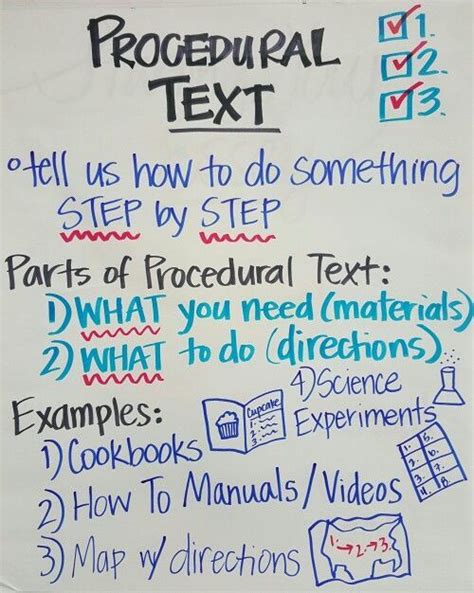 PROCEDURAL
TEXT
1.
2.
3.
tell us how to do something
STEP by STEP
Parts of Procedural Text:
1) WHAT you need (materials)
2) WHAT to do (directions)
Examples:
1) Cookbooks
Cupcake
1.
2.
3.
4) Science
Experiments
2) How To Manuals/Videos
1. 5.
2. 6.
3. 7.
4. 8.
3) Map w/ directions
1. → 2. → 3.